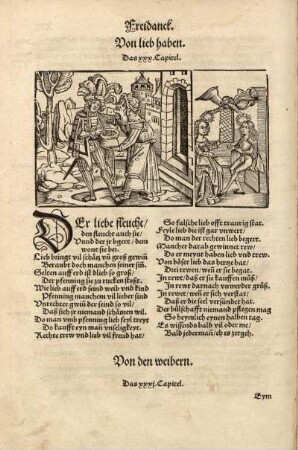 Freidanck.
Von lieb haben.
Das xxx. Capitel.
DEr liebe fleucht/
den fleucht auch sie/
Vnnd der jr bgert/ dem
wont sie bei.
Lieb bringt vil schätz vñ groß gewiñ
Beraubt doch manchen seiner siñ.
Selten auff erd ist lieb so groß/
Der pfenning sie zu rucken stoßt.
Wie lieb auff erd seind weib vnd kind
Pfenning manchem vil lieber sind
Vnrechter gwin der seind so vil/
Daß sich jr niemand schämen wil.
Do man vmb pfenning lieb feyl treyt
Do kaufft eyn man vnseligkeyt.
Rechte trew vnd lieb vil freud hat/
So falsche lieb offt traurig stat.
Feyle lieb die ist gar vnwert/
Do man der rechten lieb begert.
Mancher darab gewinnet rew/
Do er meynt haben lieb vnd trew.
Von böser lieb das hertz hat/
Drei rewen/ wañ er sie begat.
In rew/ daß er sie kauffen müß/
In rew darnach vnwerder grüß.
In rew/ weñ er sich verstat/
Daß er die seel versündet hat.
Der bůlschafft niemand pflegen mag
So heymlich eynen halben tag.
Es wissends bald vil oder me/
Bald jederman/ eh es zergeh.
Von den weibern.
Das xxxj. Capitel.
Eym